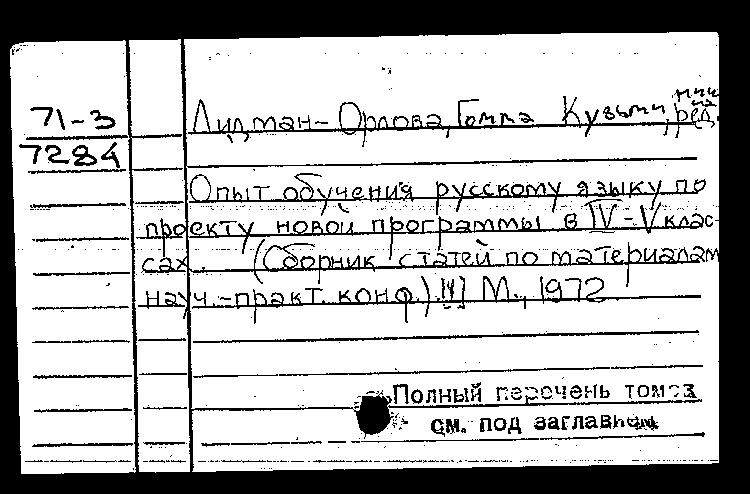 71-3
7284
Лидман-Орлова, Гомма Кузьми, нич на ред.
Опыт обучения русскому языку по
проекту новой программы в IV-V клас-
сах. (Сборник статей по материалам
науч.-практ. конф.). М., 1972
Полный перечень томов
см. под заглавием